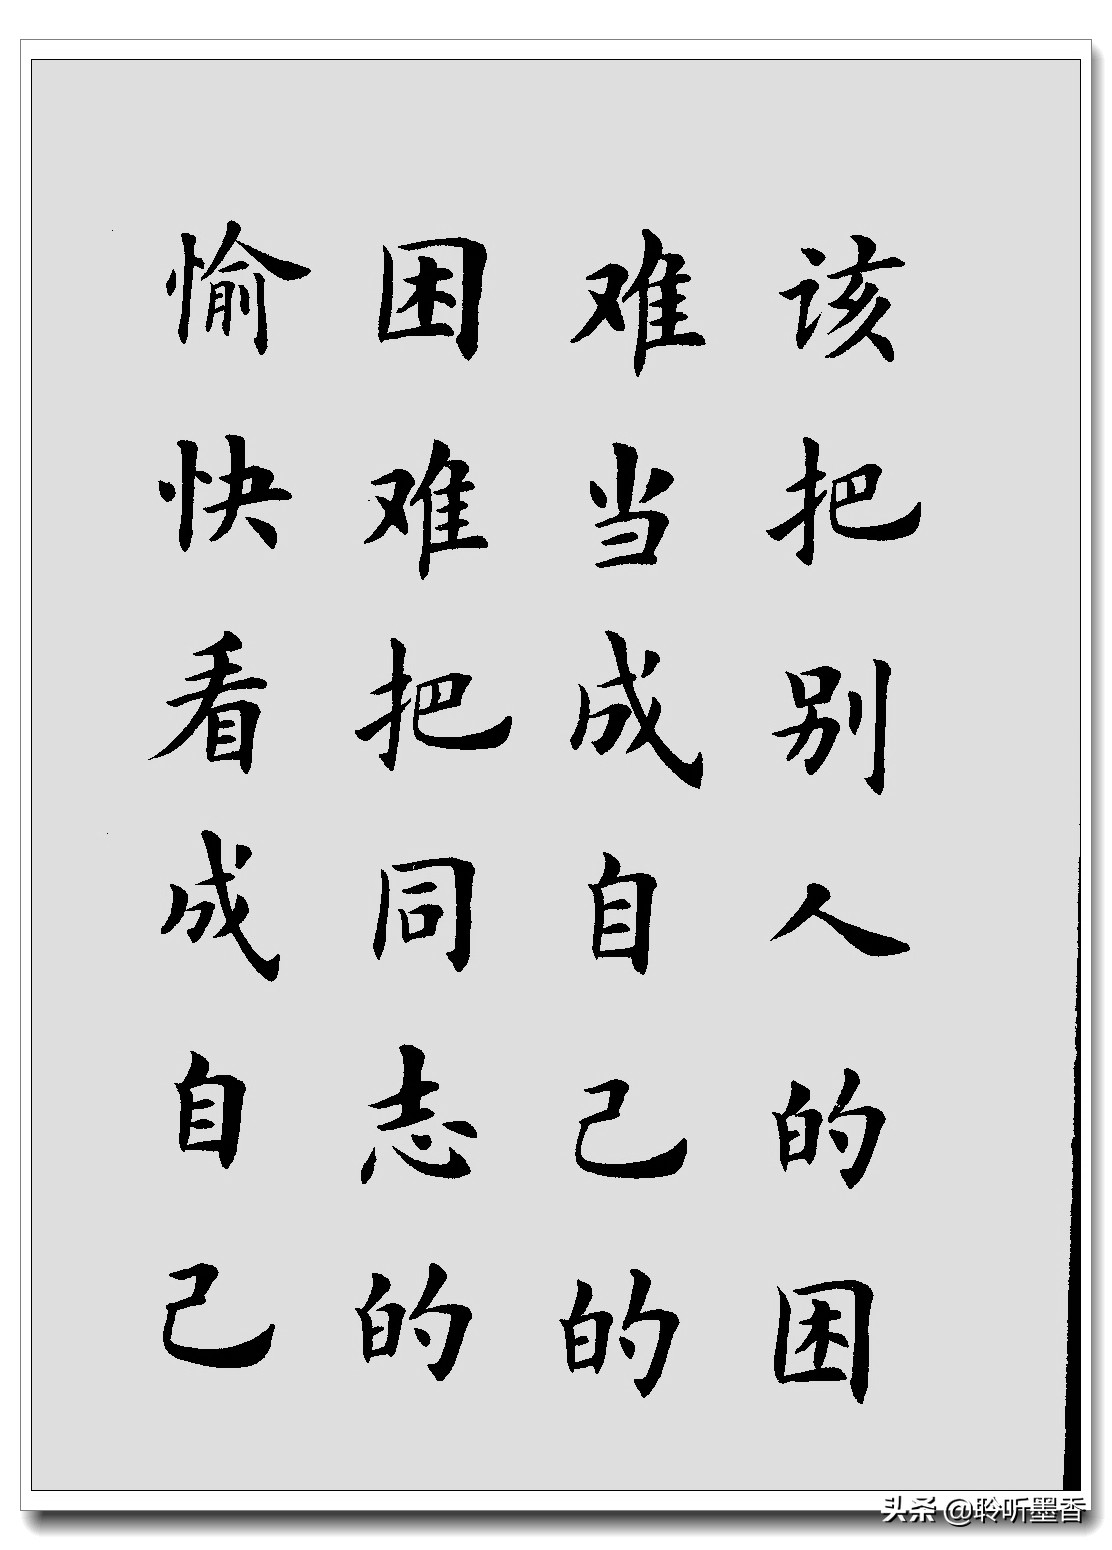 该把别人的困
难当成自己的
困难把同志的
愉快看成自己
头条 @聆听墨香